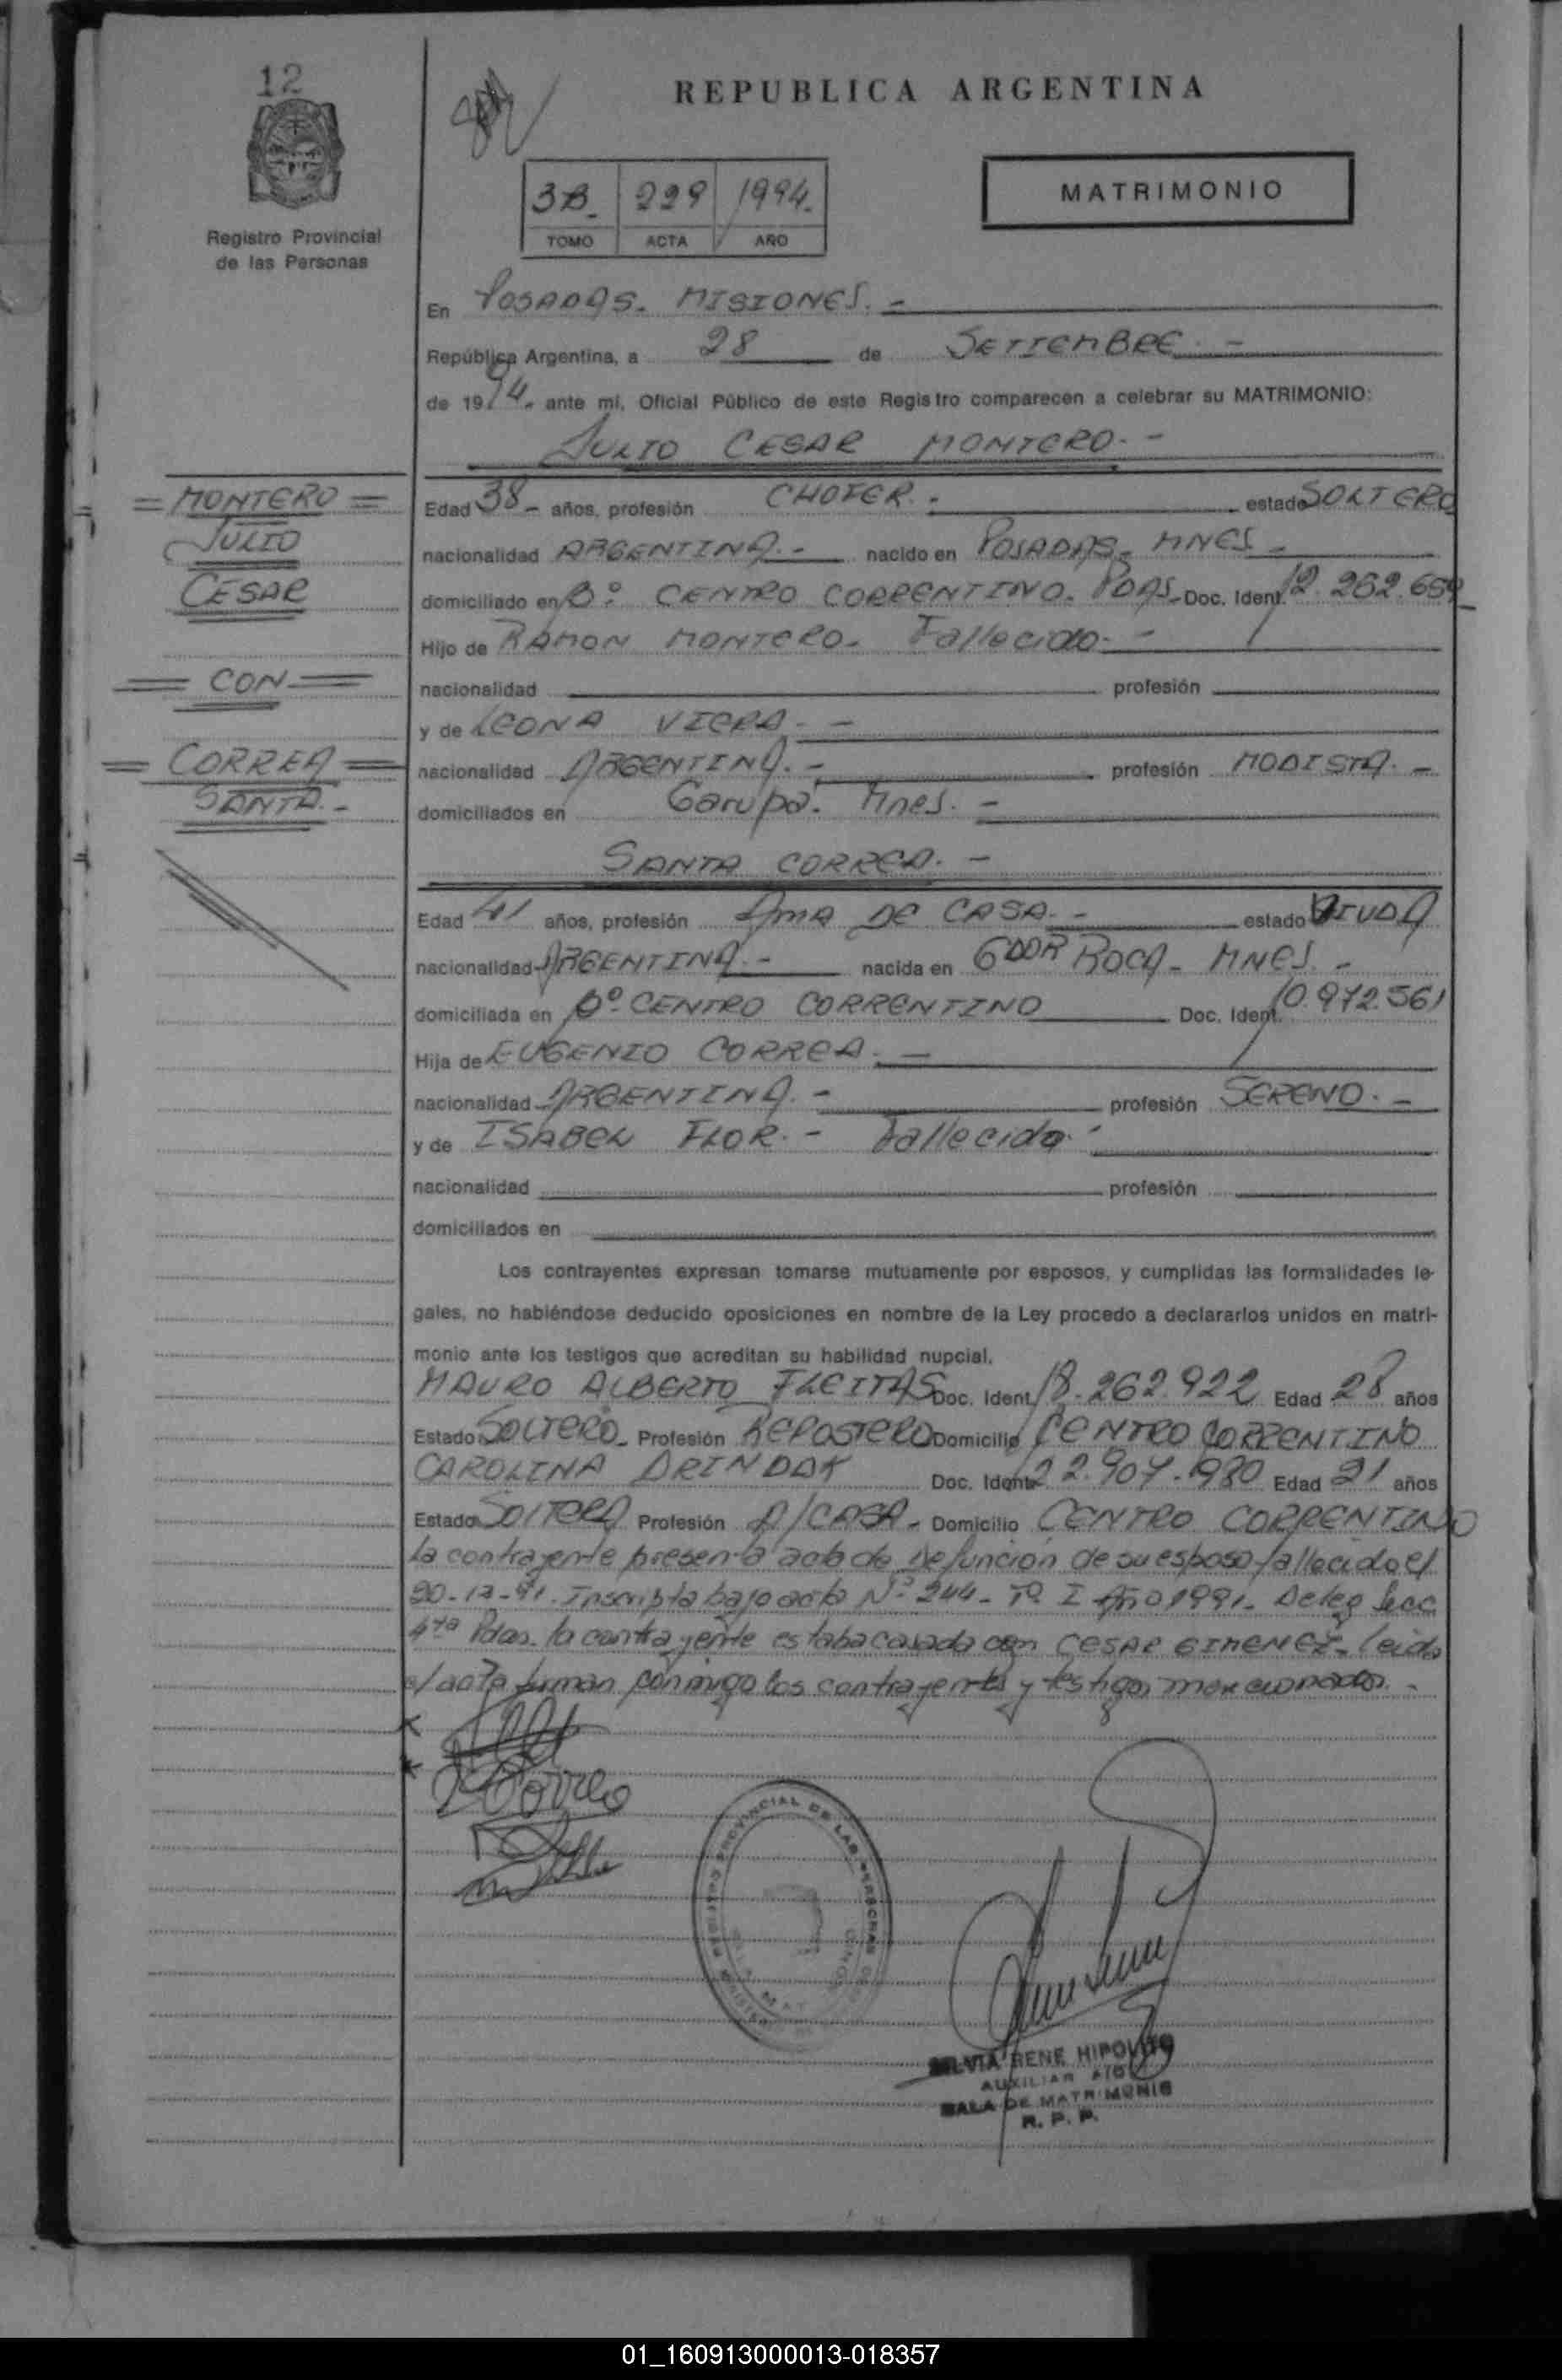 12
REPUBLICA ARGENTINA
Registro Provincial
de las Personas
3B 229 1994
TOMO ACTA AÑO
MATRIMONIO
En POSADAS. MISIONES. -
República Argentina, a 28 de SETIEMBRE. -
de 1994. ante mí, Oficial Público de este Registro comparecen a celebrar su MATRIMONIO:
JULIO CESAR MONTERO. -
= MONTERO =
JULIO
CESAR
= CON =
= CORREA =
SANTA. -
Edad 38 - años, profesión CHOFER. estado SOLTERO
nacionalidad ARGENTINA. - nacido en POSADAS - MNES -
domiciliado en B° CENTRO CORRENTINO. PDAS - Doc. Ident. 12.262.659
Hijo de RAMON MONTERO - Fallecido. -
nacionalidad profesión
y de LEONA VIERA - -
nacionalidad ARGENTINA. - profesión MODISTA. -
domiciliados en Garupa. Mnes. -
SANTA CORREA. -
Edad 41 años, profesión AMA DE CASA. - estado VIUDA
nacionalidad ARGENTINA. - nacida en GDOR ROCA - MNES. -
domiciliada en B° CENTRO CORRENTINO Doc. Ident. 10.972.561
Hija de EUGENIO CORREA. -
nacionalidad ARGENTINA. - profesión SERENO. -
y de ISABEL FLOR. - Fallecida. -
nacionalidad profesión
domiciliados en
Los contrayentes expresan tomarse mutuamente por esposos, y cumplidas las formalidades le-
gales, no habiéndose deducido oposiciones en nombre de la Ley procedo a declararlos unidos en matri-
monio ante los testigos que acreditan su habilidad nupcial.
MAURO ALBERTO FLEITAS Doc. Ident. 18.262.922 Edad 28 años
Estado SOLTERO - Profesión REPOSTERO Domicilio CENTRO CORRENTINO
CAROLINA DRINDAK Doc. Ident. 22.907.980 Edad 21 años
Estado SOLTERA Profesión A/CASA - Domicilio CENTRO CORRENTINO
La contrayente presenta acta de defunción de su esposo fallecido el
20-12-91. Inscripta bajo acta N° 244 - T° I Año 1991 - Deleg Secc
4ta Pdas. la contrayente estaba casada con CESAR GIMENEZ - leida
el acta firman conmigo los contrayentes y testigos mencionados. -
Correa
REGISTRO PROVINCIAL DE LAS PERSONAS
SILVIA RENE HIPOLITO
AUXILIAR
SALA DE MATRIMONIO
R. P. P.
01_160913000013-018357